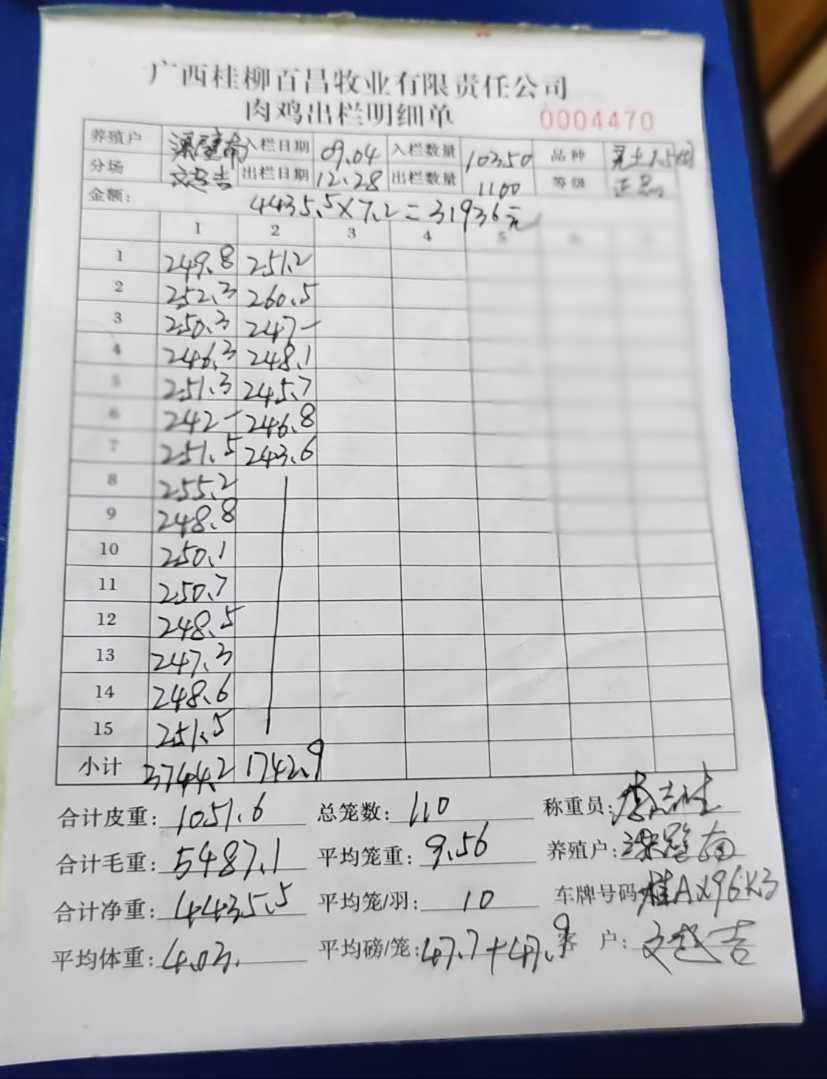 广西桂柳百昌牧业有限责任公司
肉鸡出栏明细单 0004470
养殖户 入栏日期 09.04 入栏数量 10350 品种
分场 文越吉 出栏日期 12.28 出栏数量 1100 等级 正品
金额: 4435.5×7.2=31936元
1 2 3 4 5 6 7
1 249.8 251.2
2 252.3 260.5
3 250.3 247-
4 246.3 248.1
5 251.3 245.7
6 242- 246.8
7 251.5 243.6
8 255.2
9 248.8
10 250.1
11 250.7
12 248.5
13 247.3
14 248.6
15 251.5
小计 3744.2 1742.9
合计皮重: 1051.6 总笼数: 110 称重员:
合计毛重: 5487.1 平均笼重: 9.56 养殖户:
合计净重: 4435.5 平均笼/羽: 10 车牌号码 桂AX96K3
平均体重: 4.03. 平均磅/笼: 47.7+47.9 客 户: 文越吉